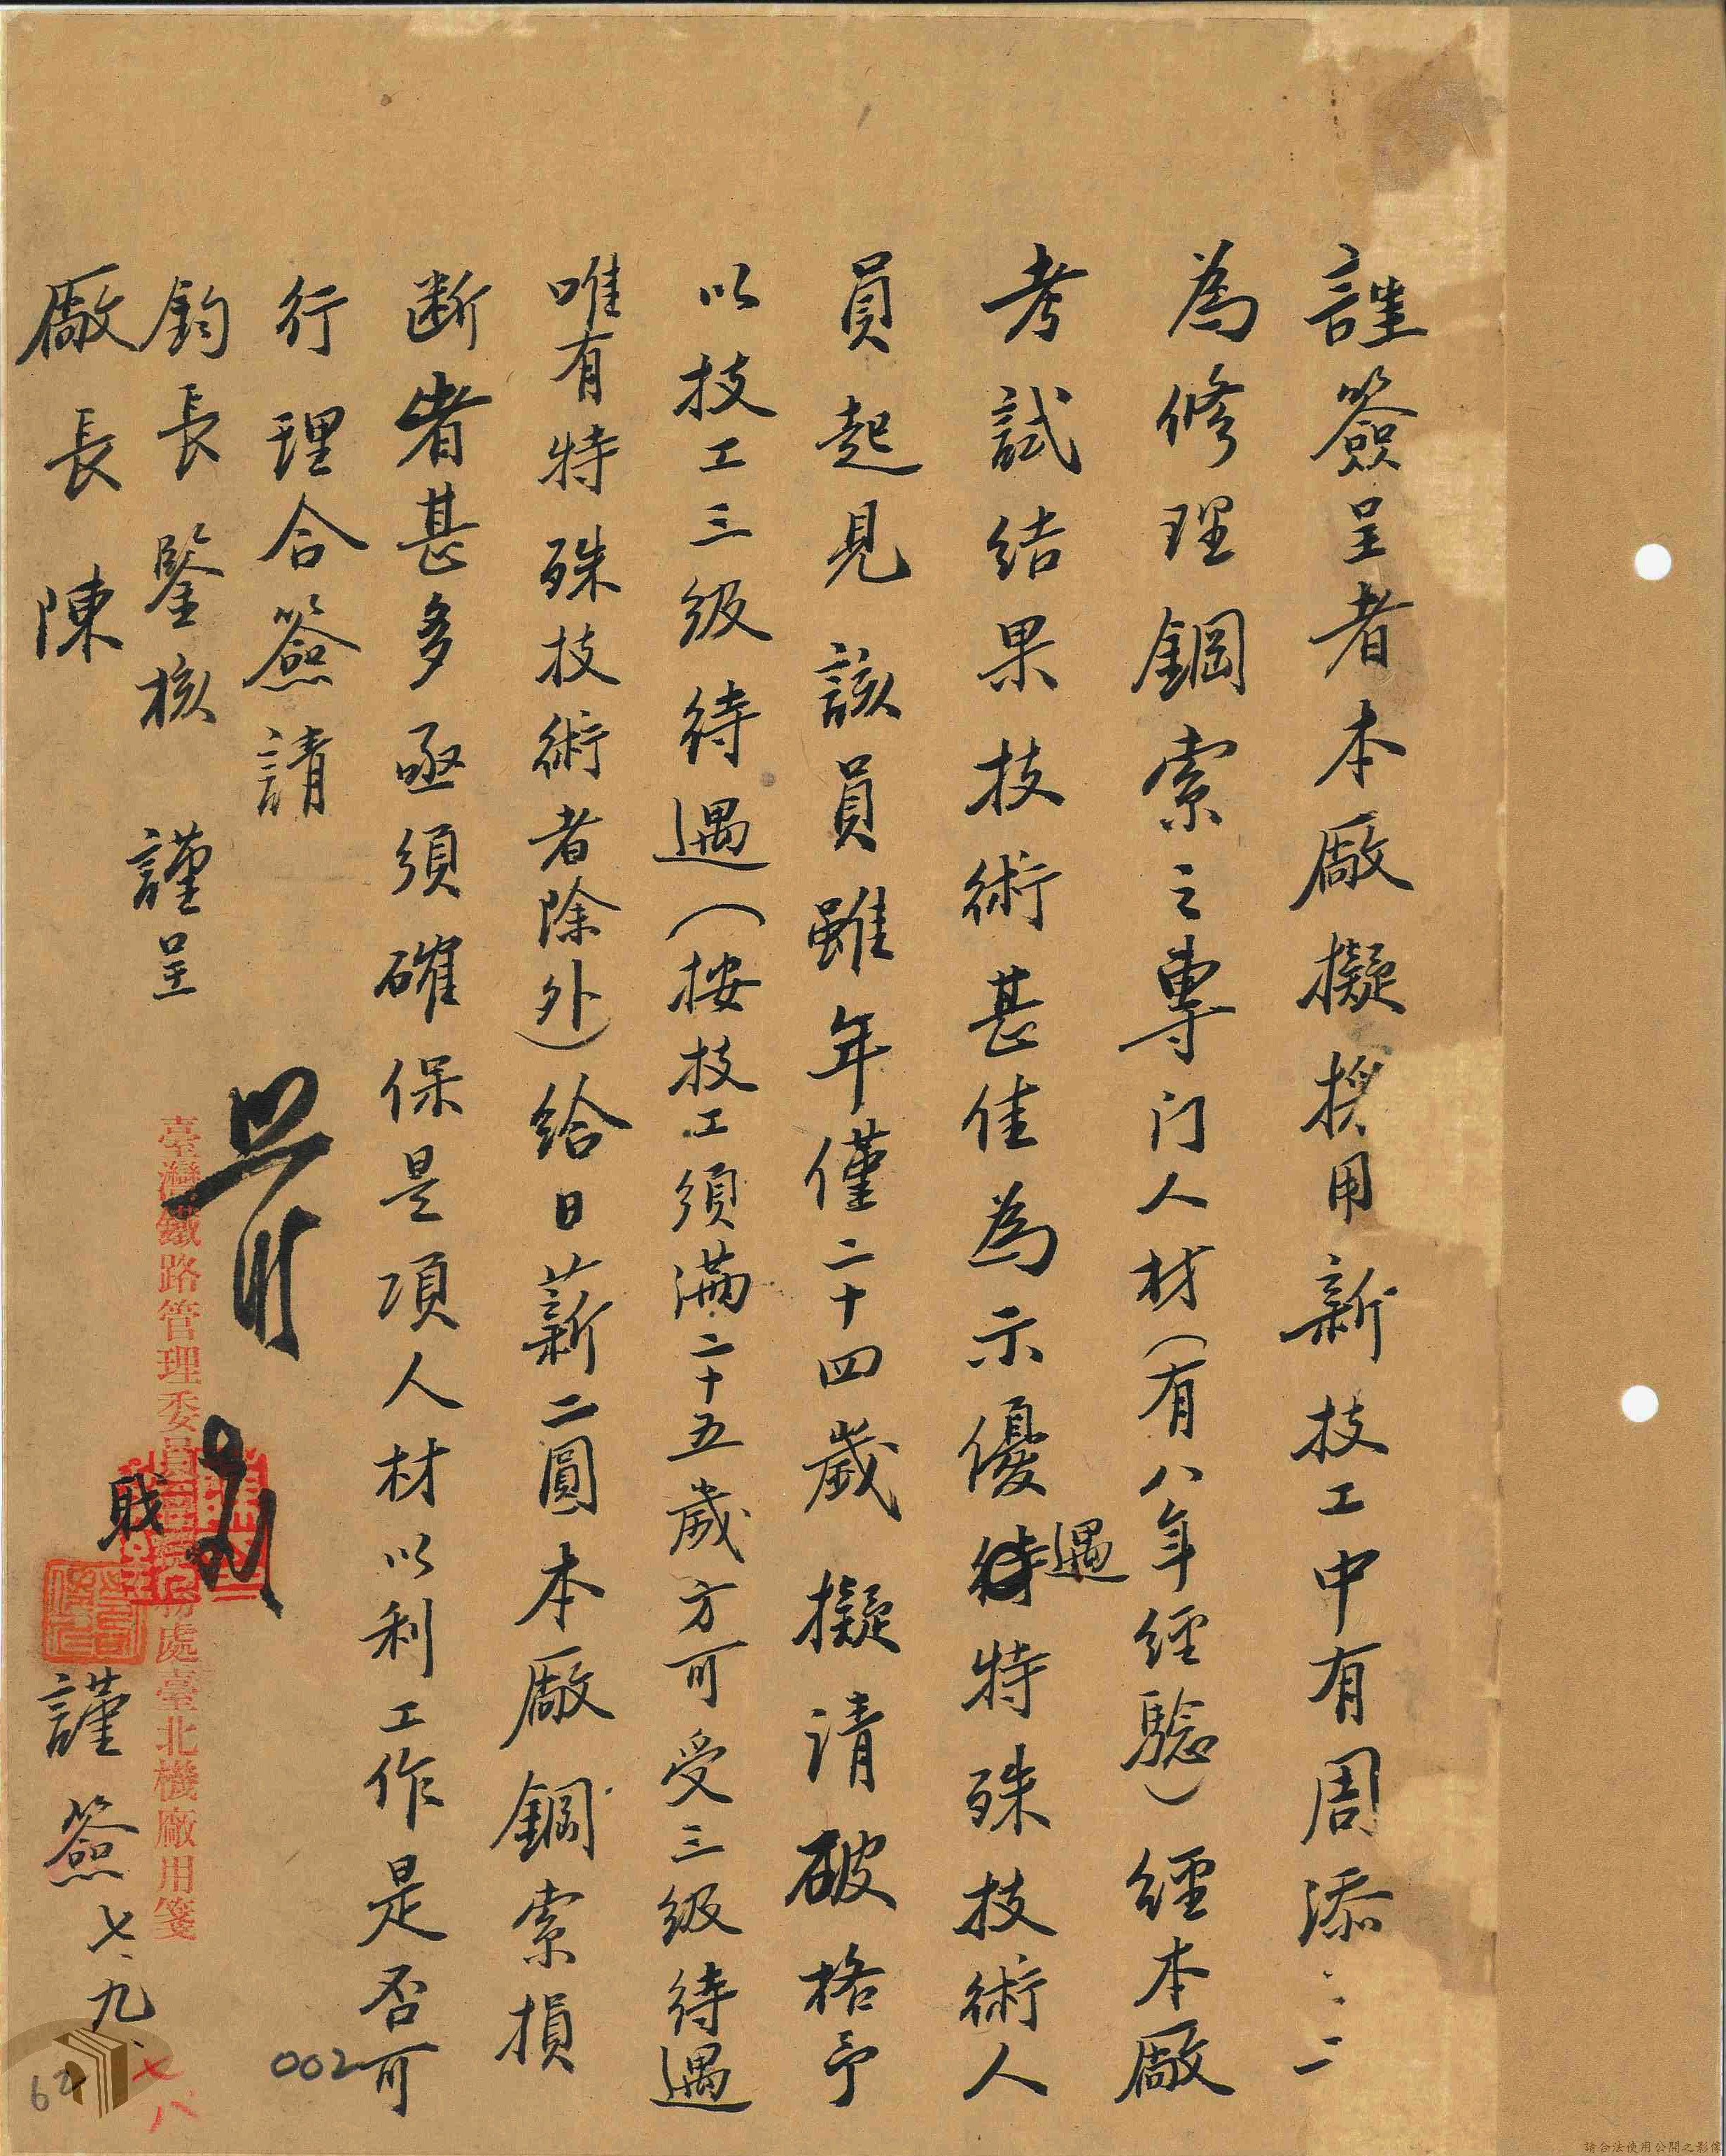 謹簽呈者本廠擬採用新技工中有周添二
為修理鋼索之專门人材(有八年經驗)經本廠
考試結果技術甚佳為示優遇特殊技術人
員起見該員雖年僅二十四歲擬请破格予
以技工三級待遇(按技工須滿二十五歲方可受三級待遇
唯有特殊技術者除外)給日薪二圓本廠鋼索損
断者甚多亟須確保是項人材以利工作是否可
行理合簽請
鈞長鑒核 謹呈
廠長陳
職 謹簽 七、九、
臺灣鐵路管理委員會 處臺北機廠用箋
七八
002
62
請合法使用公開之影像